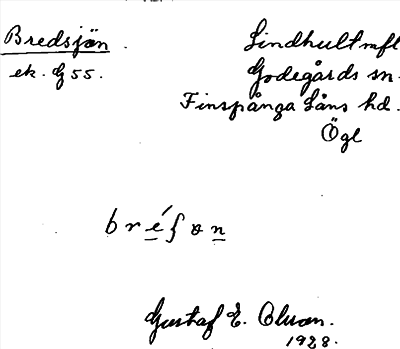 Bredsjön
ek. G 55.
Lindhult mfl
Godegårds sn.
Finspånga Läns hd.
Ögl
bréʃɵn
Gustaf E. Olsson.
1928.